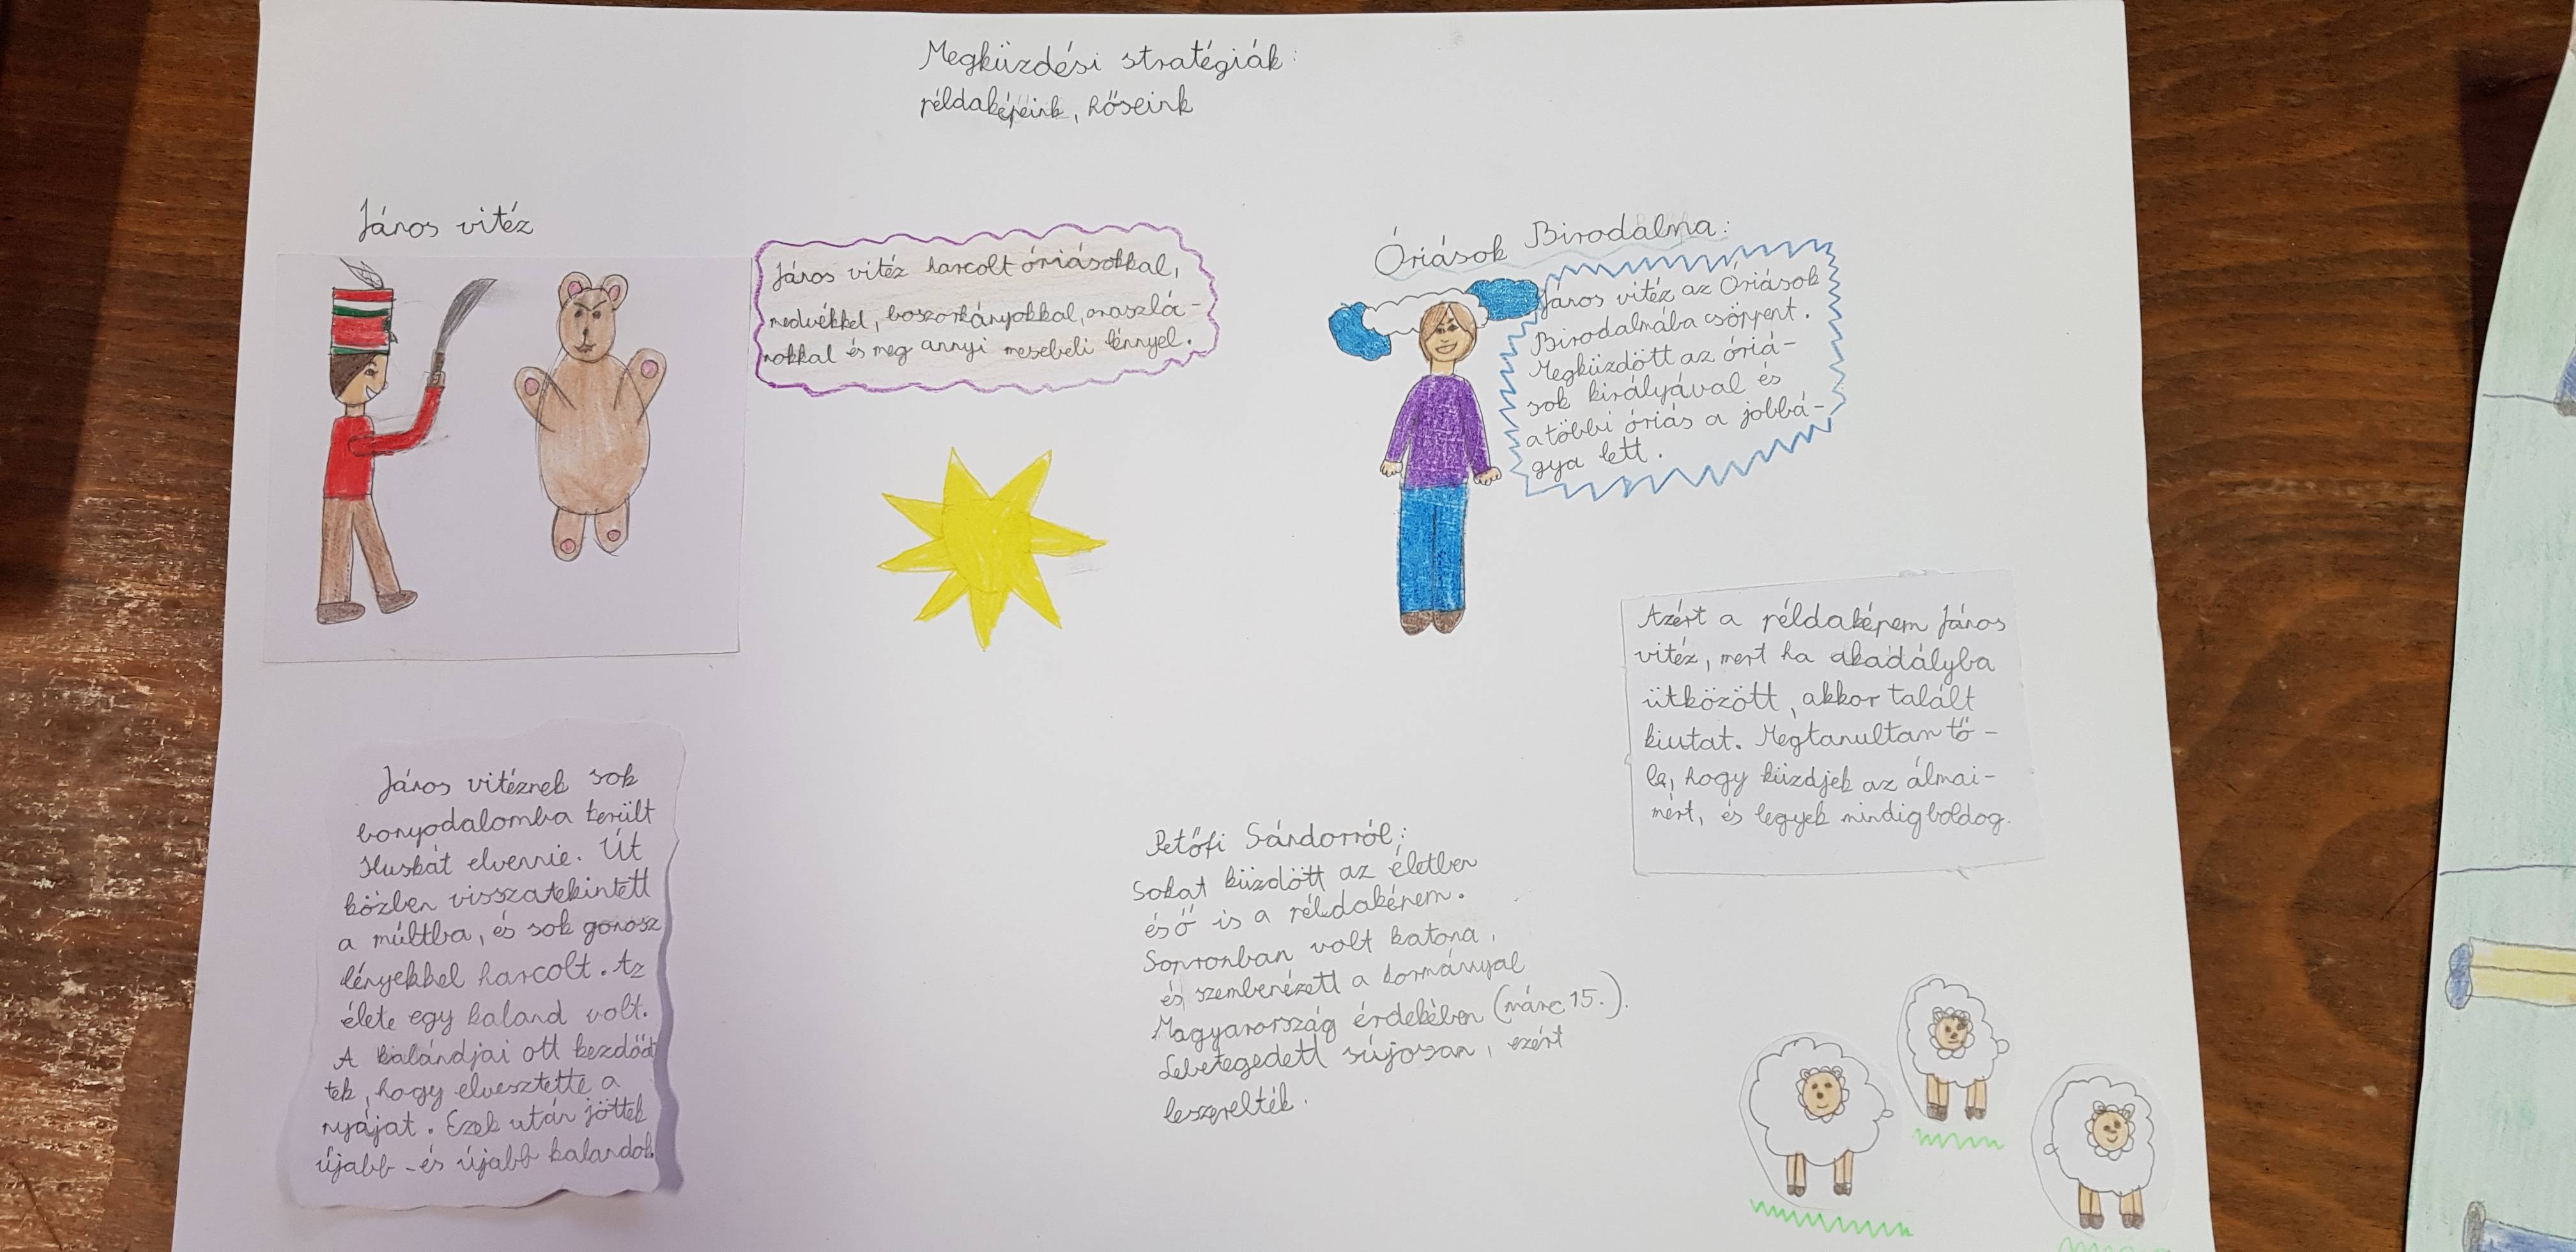 Megküzdési stratégiák:
példaképeink, hőseink
János vitéz
János vitéz harcolt óriásokkal,
medvékkel, boszorkányokkal, oroszlá-
nokkal és meg annyi mesebeli lénnyel.
Óriások Birodalma:
János vitéz az Óriások
Birodalmába csöppent.
Megküzdött az óriá-
sok királyával és
a többi óriás a jobbá-
gya lett.
Azért a példaképem János
vitéz, mert ha akadályba
ütközött, akkor talált
kiutat. Megtanultam tő-
le, hogy küzdjek az álmai-
mért, és legyek mindig boldog.
János vitéznek sok
bonyodalomba került
Iluskát elvennie. Út
közben visszatekintett
a múltba, és sok gonosz
lényekkel harcolt. Az
élete egy kaland volt.
A kalandjai ott kezdőd
tek, hogy elvesztette a
nyáját. Ezek után jöttek
újabb -és újabb kalandok.
Petőfi Sándorról:
Sokat küzdött az életben
és ő is a példaképem.
Sopronban volt katona,
és szembenézett a kormánnyal
Magyarország érdekében (márc 15.).
Lebetegedett súlyosan, ezért
leszerelték.